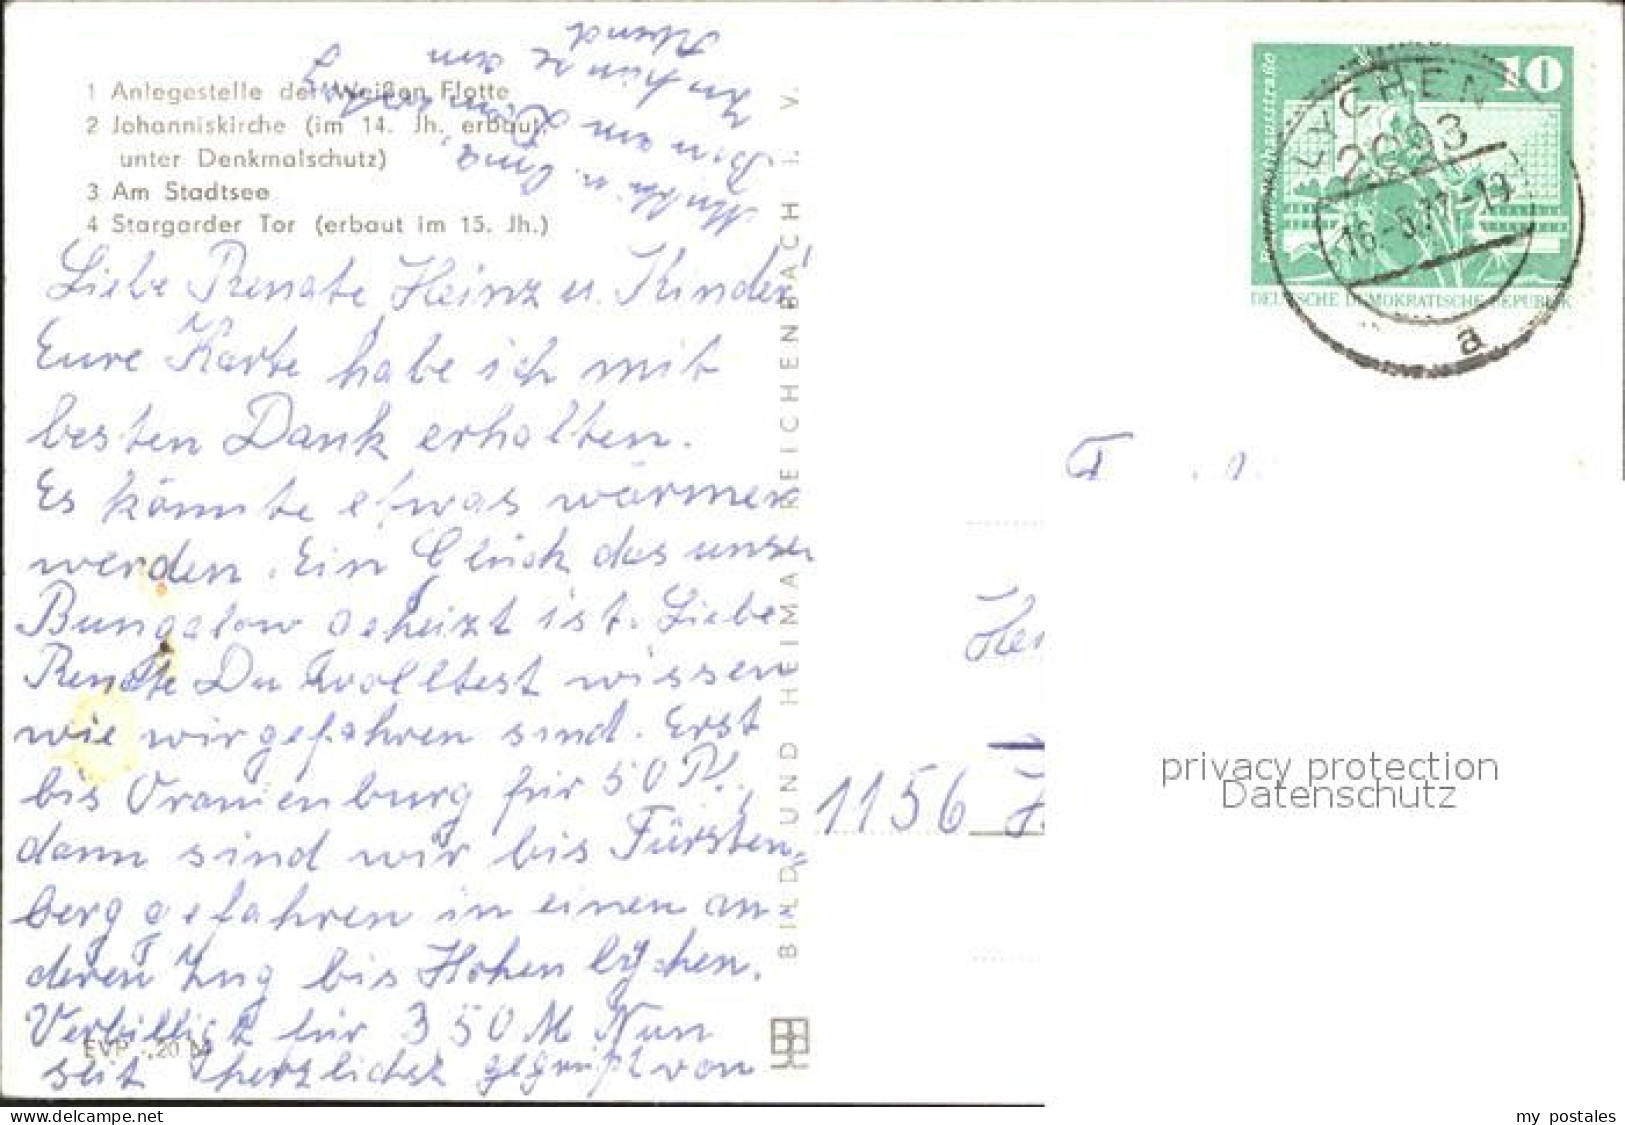 1 Anlegestelle der Weißen Flotte
2 Johanniskirche (im 14. Jh. erbaut,
unter Denkmalschutz)
3 Am Stadtsee
4 Stargarder Tor (erbaut im 15. Jh.)
Liebe Renate Heinz u. Kinder
Eure Karte habe ich mit
besten Dank erhalten.
Es könnte etwas wärmer
werden. Ein Glück das unser
Bungalow geheizt ist. Liebe
Renate Du wolltest wissen
wie wir gefahren sind. Erst
bis Oranienburg für 50 Pf.,
dann sind wir bis Fürsten=
berg gefahren in einen an=
deren Zug bis Hohenlychen.
Verbilligt für 3 50 M Nun
seit herzlichst gegrüßt von
u. Oma
Abend
EVP -,20 M
BILD UND HEIMAT REICHENBACH I. V.
10
DEUTSCHE DEMOKRATISCHE REPUBLIK
LYCHEN
2093
a
1156
privacy protection
Datenschutz
my postales